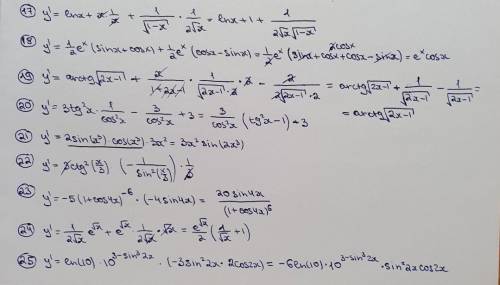 17 y' = lnx + x · 1/x + 1/√(1-x) · 1/(2√x) = lnx + 1 + 1/(2√x √(1-x))
18 y' = 1/2 e^x (sinx + cosx) + 1/2 e^x (cosx - sinx) = 1/2 e^x (sinx + cosx + cosx - sinx) = e^x cosx
2cosx
19 y' = arctg√(2x-1) + x/(1+2x-1) · 1/(√(2x-1) · 2) · 2 - 2/(2√(2x-1) · 2) = arctg√(2x-1) + 1/√(2x-1) - 1/√(2x-1) =
= arctg√(2x-1)
20 y' = 3tg²x · 1/cos²x - 3/cos²x + 3 = 3/cos²x (tg²x - 1) + 3
21 y' = 2sin(x³) cos(x³) · 3x² = 3x² sin(2x³)
22 y' = 3ctg²(x/3) (- 1/sin²(x/3)) · 1/3
23 y' = -5(1+cos4x)^-6 · (-4sin4x) = 20sin4x/(1+cos4x)^6
24 y' = 1/(2√x) e^√x + e^√x 1/(2√x) · √x = e^√x/2 (1/√x + 1)
25 y' = ln(10) · 10^(3-sin³2x) · (-3sin²2x · 2cos2x) = -6ln(10) · 10^(3-sin³2x) · sin²2x cos2x